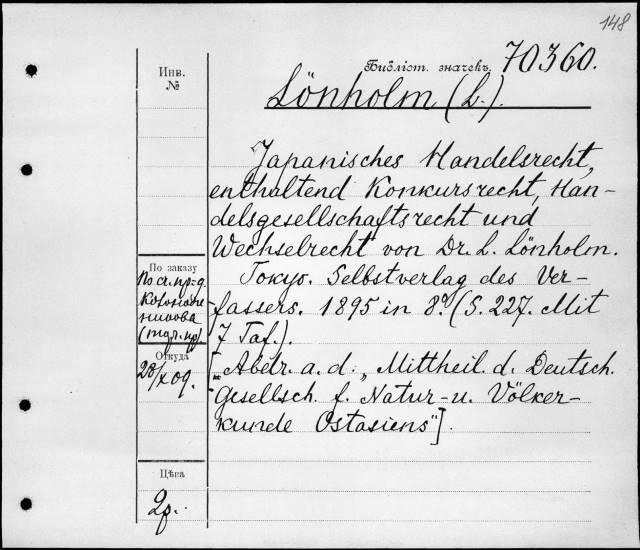 148
Библіот. значекъ. 70360.
Инв.
№
Lönholm (L.).
Japanisches Handelsrecht,
enthaltend Konkursrecht, Han-
delsgesellschaftsrecht und
Wechselrecht von Dr. L. Lönholm.
Tokyo. Selbstverlag des Ver-
fassers. 1895 in 8º. (S. 227. Mit
7 Taf.).
["Abdr. a. d. „Mittheil. d. Deutsch.
Gesellsch. f. Natur- u. Völker-
kunde Ostasiens"].
По заказу
Откуда
28/X 09.
Цѣна
2р.